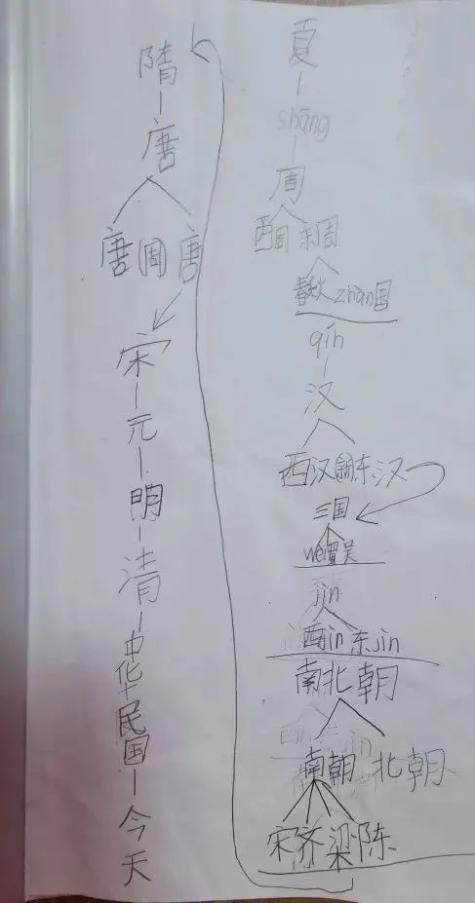 夏
shāng
周
西周 东周
春秋 zhàn国
qín
汉
西汉 东汉
三国
wèi 吴
jìn
西jìn 东jìn
南北朝
南朝 北朝
宋济梁陈
隋
唐
唐 周 唐
宋
元
明
清
中华民国
今天